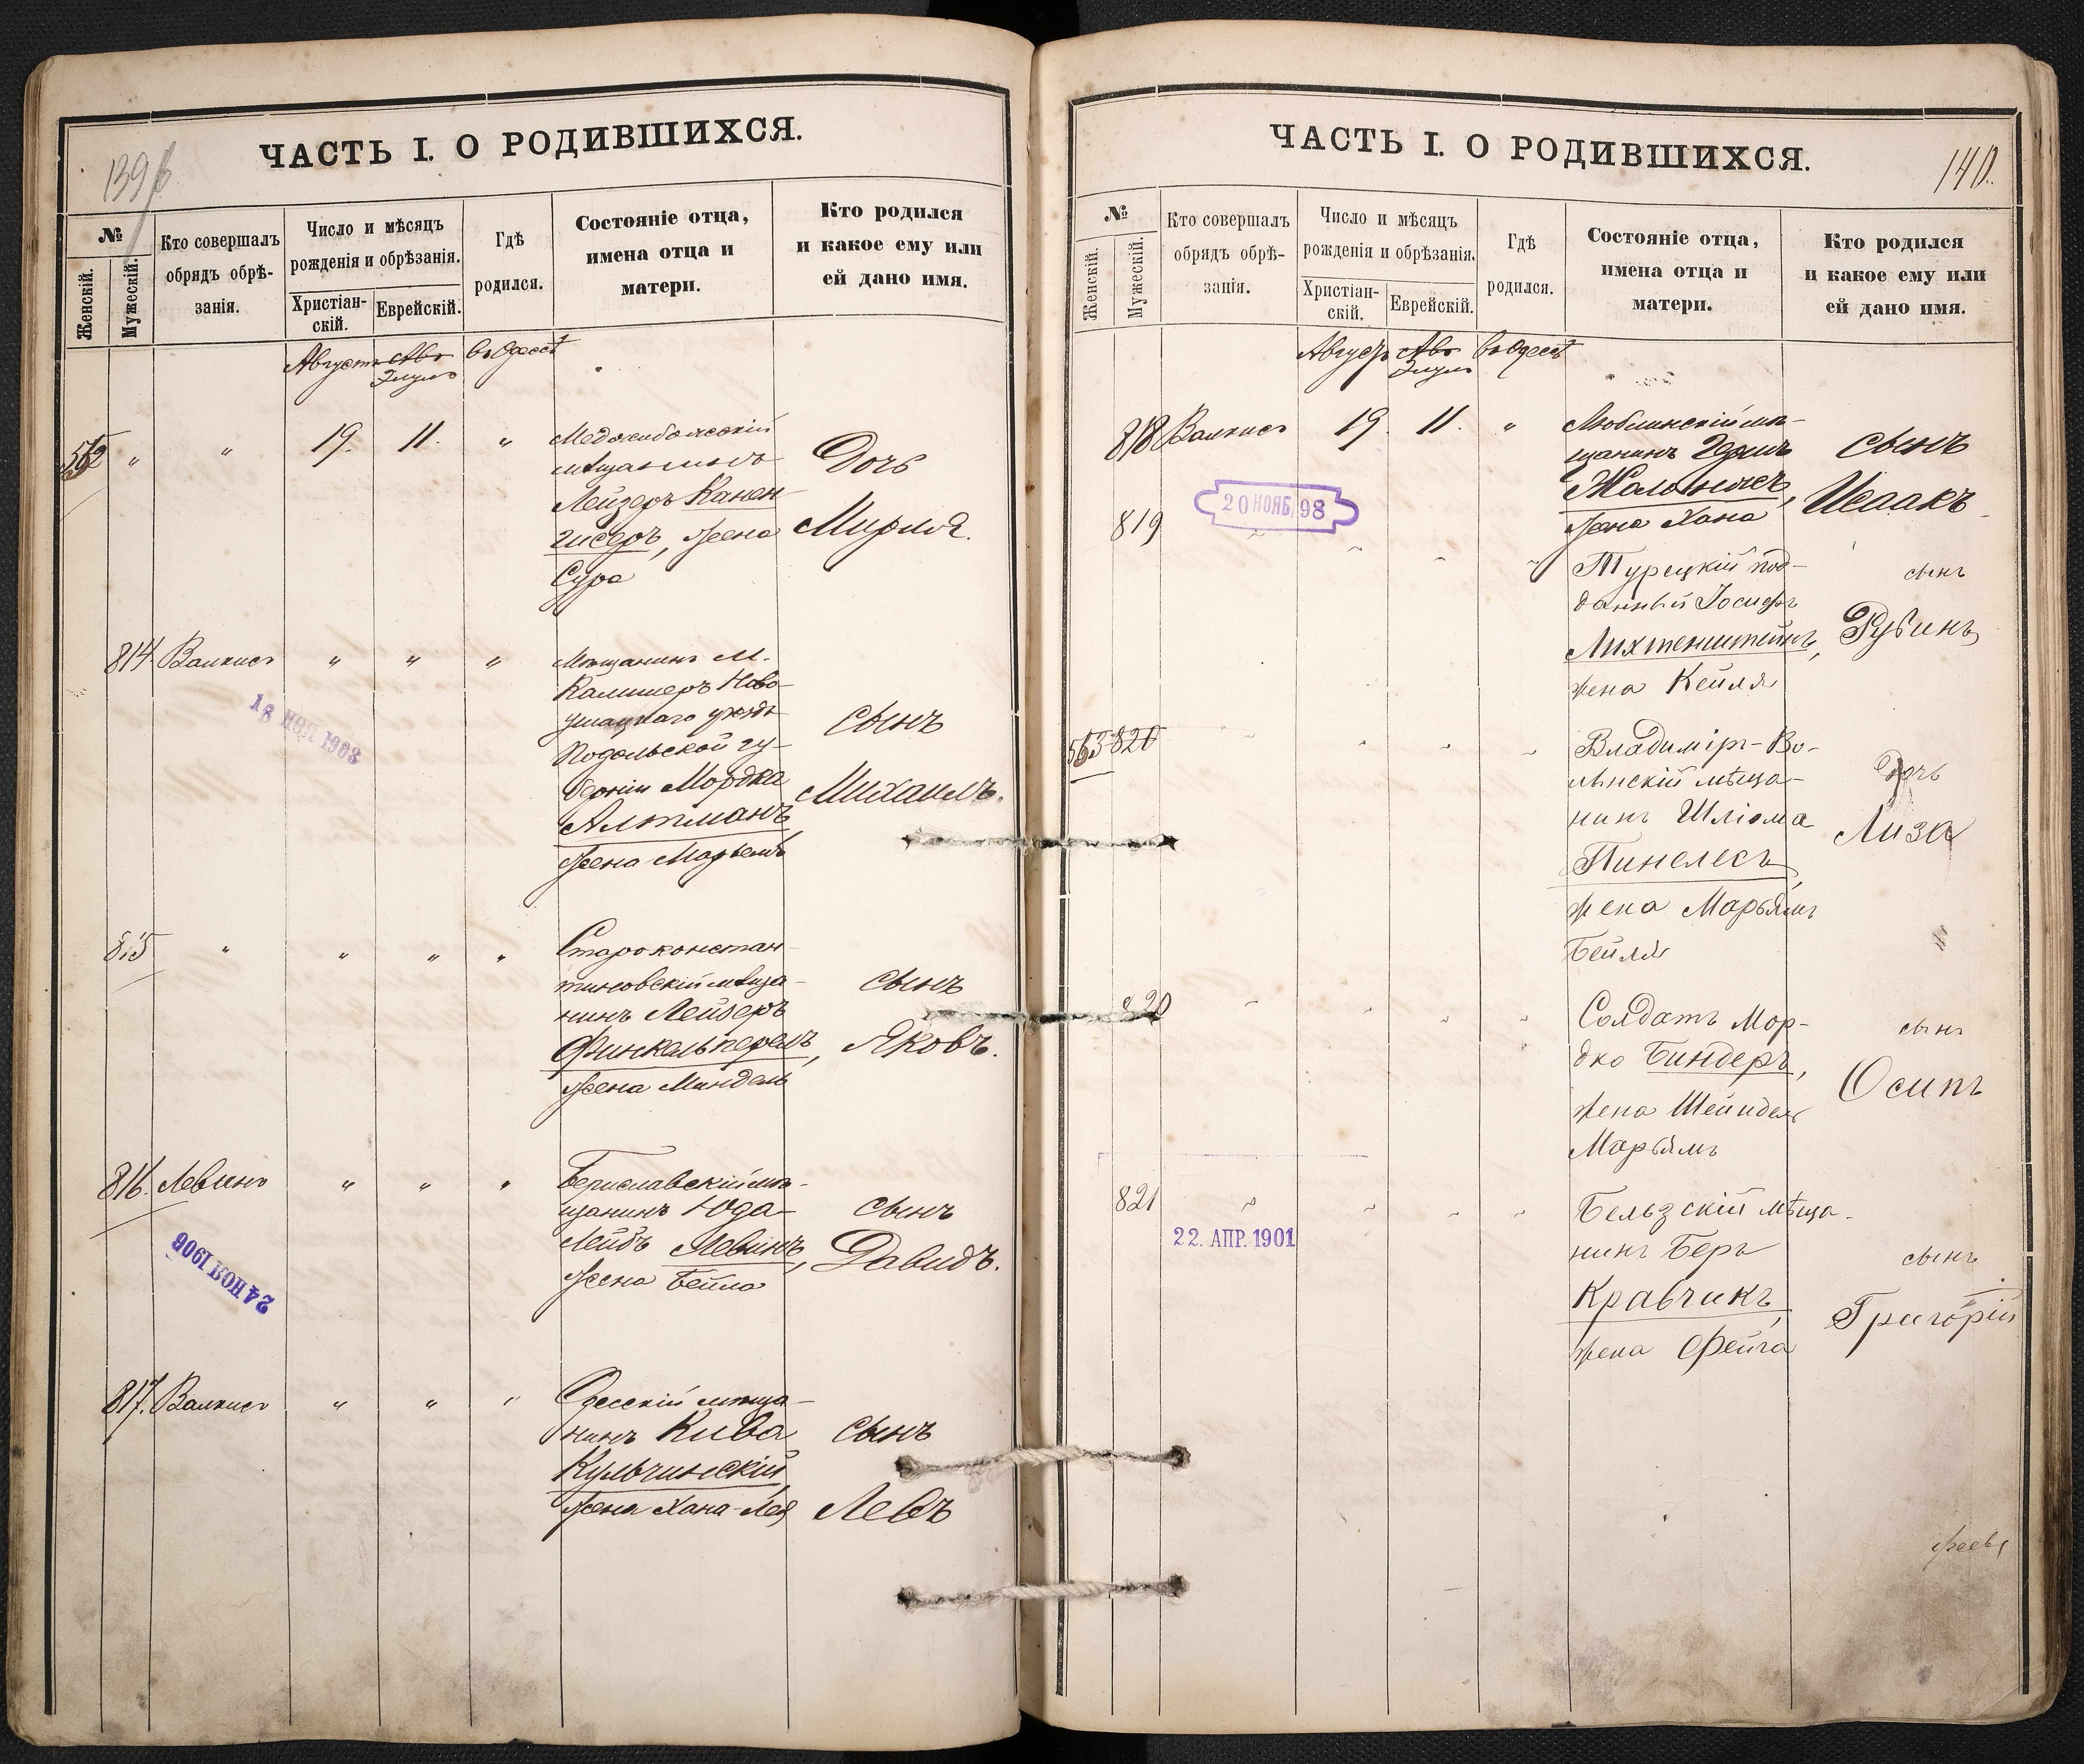 ЧАСТЬ I. О РОДИВШИХСЯ.
№
Женскій.
Мужескій.
Кто совершалъ
обрядъ обрѣ-
занія.
Число и мѣсяцъ
рожденія и обрѣзанія.
Христіан-
скій.
Еврейскій.
Гдѣ
родился.
Состояніе отца,
имена отца и
матери.
Кто родился
и какое ему или
ей дано имя.
Августъ Авъ въ Одессѣ
Элулъ
562 " " 19. 11. "
мѣщанинъ
Лейзеръ Канен-
гисеръ, жена
Сура
Дочь
Мирля.
814. Валкисъ " " "
Мѣщанинъ м.
Калишеръ Ново-
ушицкаго уѣзда
Подольской гу-
берніи Мордка
Алтманъ,
жена Марьемъ
сынъ
Михаилъ.
18 1903
815 " " " "
Староконстан-
тиновскій мѣща-
нинъ Лейзеръ
Финкельперель,
жена Миндель
сынъ
Яковъ.
816. Левинъ " " "
Бериславскій мѣ-
щанинъ Юда-
Лейбъ Левинъ,
жена Бейла
сынъ
Давидъ.
24 1906
817. Валкисъ " " "
Одесскій мѣща-
нинъ Кива
Кульчинскій,
жена Хана-Лея
сынъ
Левъ
ЧАСТЬ I. О РОДИВШИХСЯ.
140.
№
Женскій.
Мужескій.
Кто совершалъ
обрядъ обрѣ-
занія.
Число и мѣсяцъ
рожденія и обрѣзанія.
Христіан-
скій.
Еврейскій.
Гдѣ
родился.
Состояніе отца,
имена отца и
матери.
Кто родился
и какое ему или
ей дано имя.
Августъ Авъ въ Одессѣ
Элулъ
818 Валкисъ 19. 11. "
Люблинскій мѣ-
щанинъ
жена Хана
сынъ
Исаакъ
20 НОЯБ. 98
819
Турецкій под-
данный Іосифъ
Лихтенштейнъ,
жена Кейля
сынъ
Рубинъ
563 820
Владимір-Во-
лынскій мѣща-
нинъ Шліома
Пинелесъ,
жена Марьямъ
Бейля
дочь
Лиза
820
Солдатъ Мор-
дко Биндеръ,
жена Шейндель
Марьямъ
сынъ
Осипъ
821
22. АПР. 1901
Бельзскій мѣща-
нинъ Беръ
Кравчикъ,
жена Фейга
сынъ
Григорій